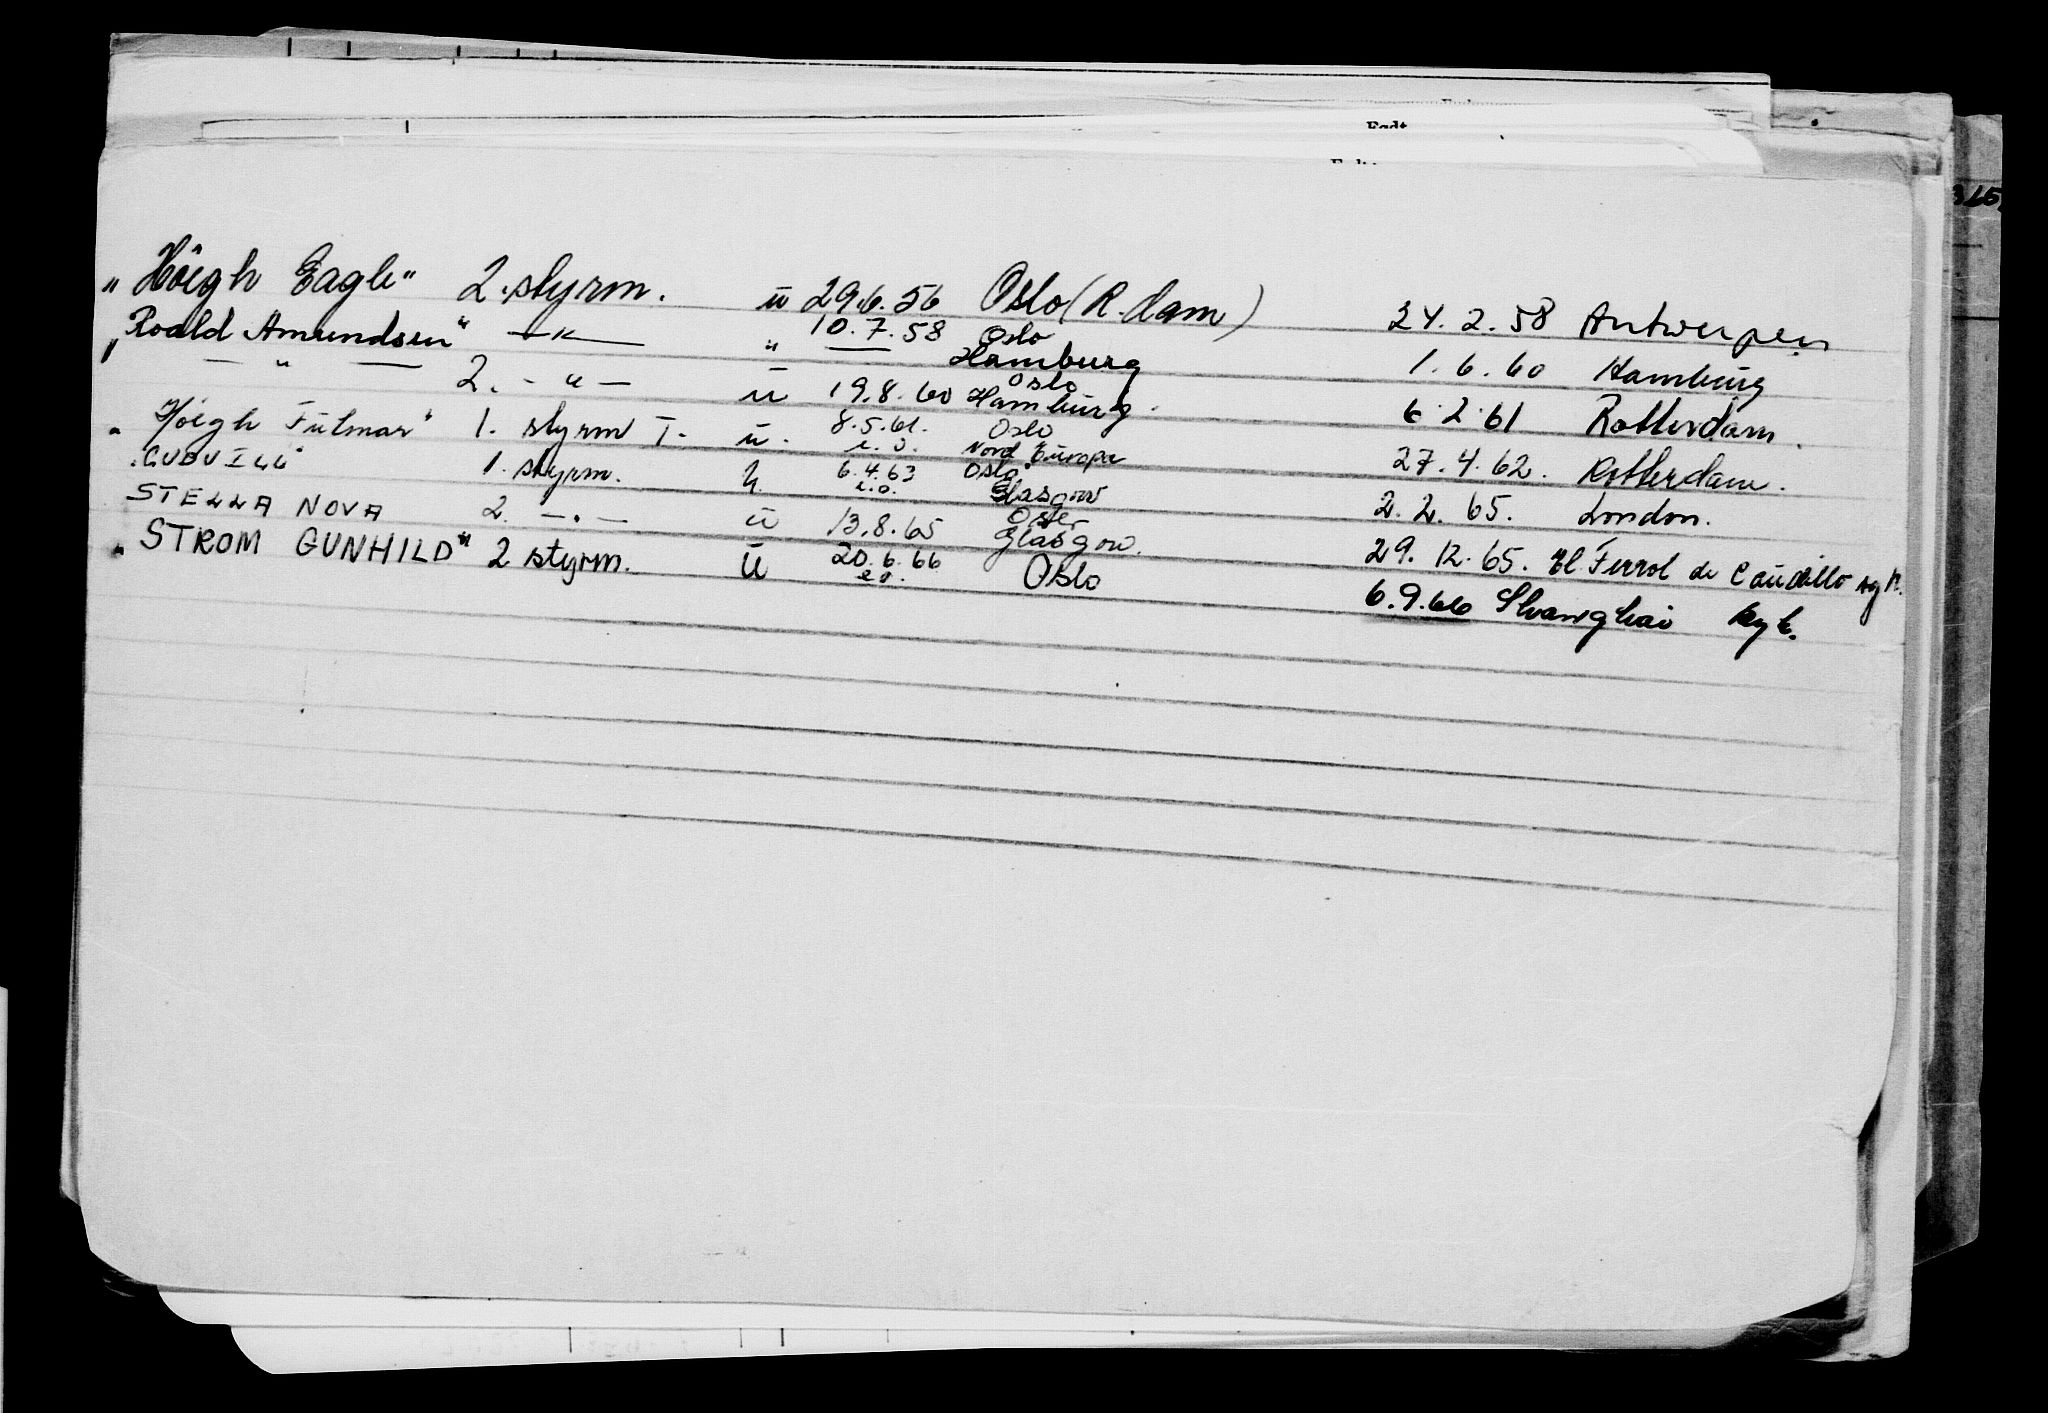 Født
"Höegh Eagle" 2. styrm. u 29.6.56 Oslo (R.dam) 24.2.58 Antwerpen
"Roald Amundsen" — " — " 10.7.58 Oslo Hamburg 1.6.60 Hamburg
— " — 2. - " - u 19.8.60 Oslo Hamburg. 6.2.61 Rotterdam.
"Höegh Fulmar" 1. styrm T. u. 8.5.61. Oslo Nord Europa 27.4.62. Rotterdam.
1. styrm. u. 6.4.63 e.o. Oslo Glasgow 2.2.65. London.
STELLA NOVA 2. - " - u 13.8.65 Glasgow. 29.12.65. El Ferrol de Caudillo syk.
"STROM GUNHILD" 2 styrm. u 20.6.66 e.o. Oslo 6.9.66 Shanghai syk.